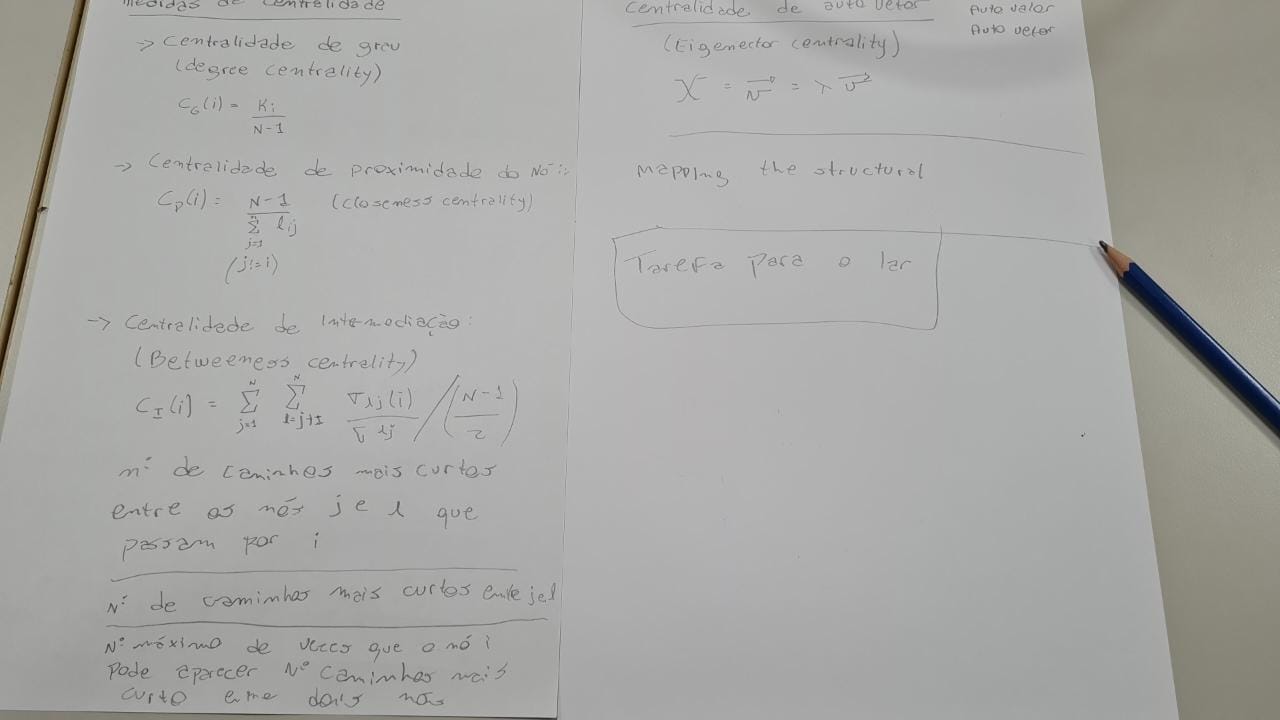 medidas de centralidade
-> Centralidade de grau
(degree centrality)
C_G(i) = Ki / N-1
-> Centralidade de proximidade do Nó i:
C_p(i) = N-1 / Σ_{j=1}^{n} lij (closeness centrality)
(j!=i)
-> Centralidade de Intermediação:
(Betweeness centrality)
C_I(i) = Σ_{j=1}^{N} Σ_{l=j+1}^{N} σlj(i) / σlj / (N-1 / 2)
nº de caminhos mais curtos
entre os nós j e l que
passam por i
Nº de caminhos mais curtos entre j e l
Nº máximo de vezes que o nó i
Pode aparecer Nº caminhos mais
curto entre dois nós
Centralidade de auto vetor
Auto valor
Auto vetor
(Eigenector centrality)
= λ v⃗
Mapping the structural
Tarefa para o lar